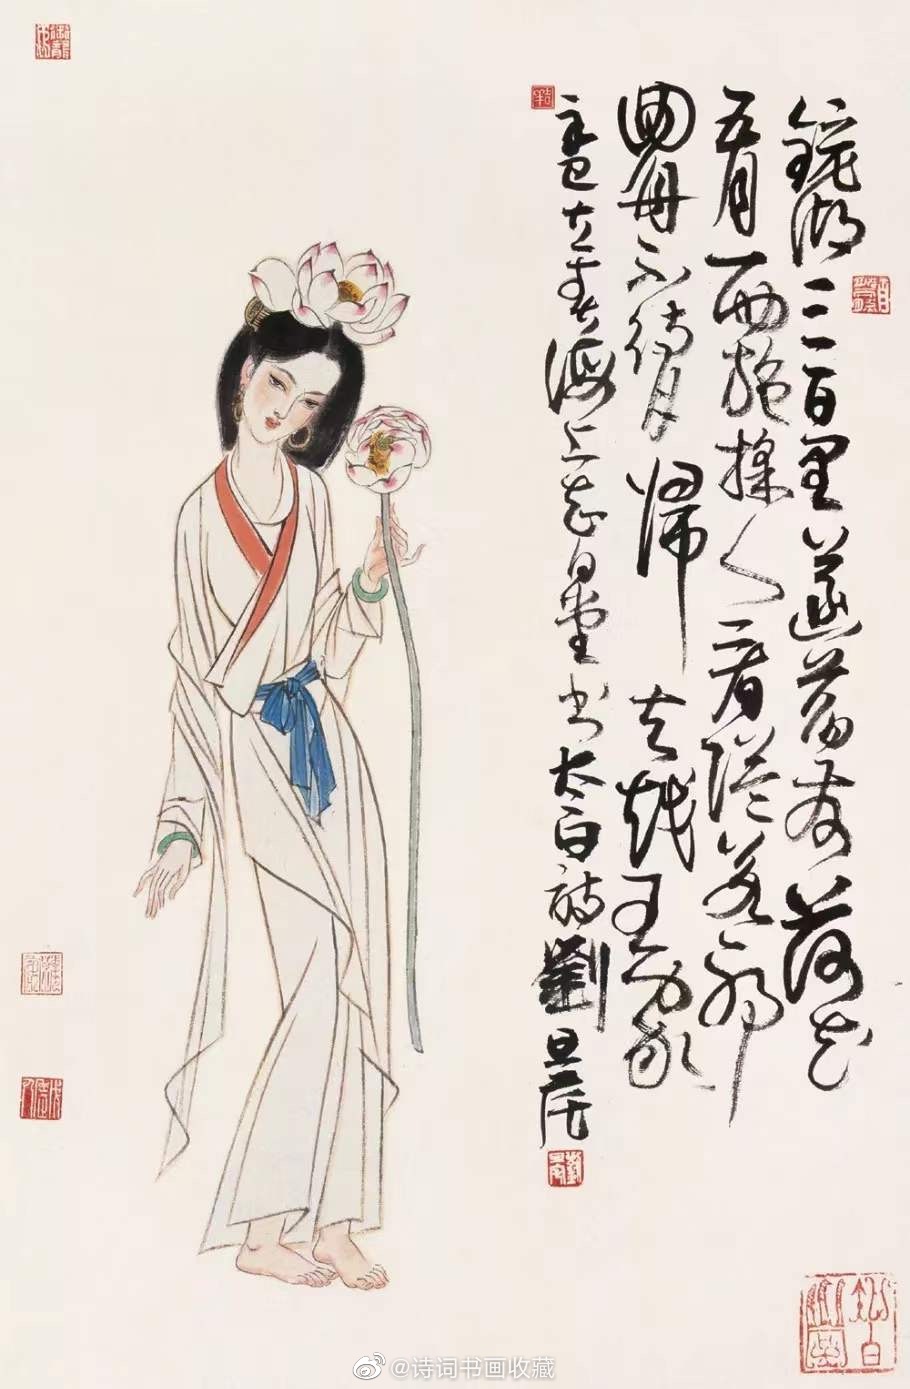 鏡湖三百里菡萏發荷花
五月西施採人看隘若耶
回舟不待月歸去越王家
辛巳立春海上堂書太白詩劉旦宅
@诗词书画收藏